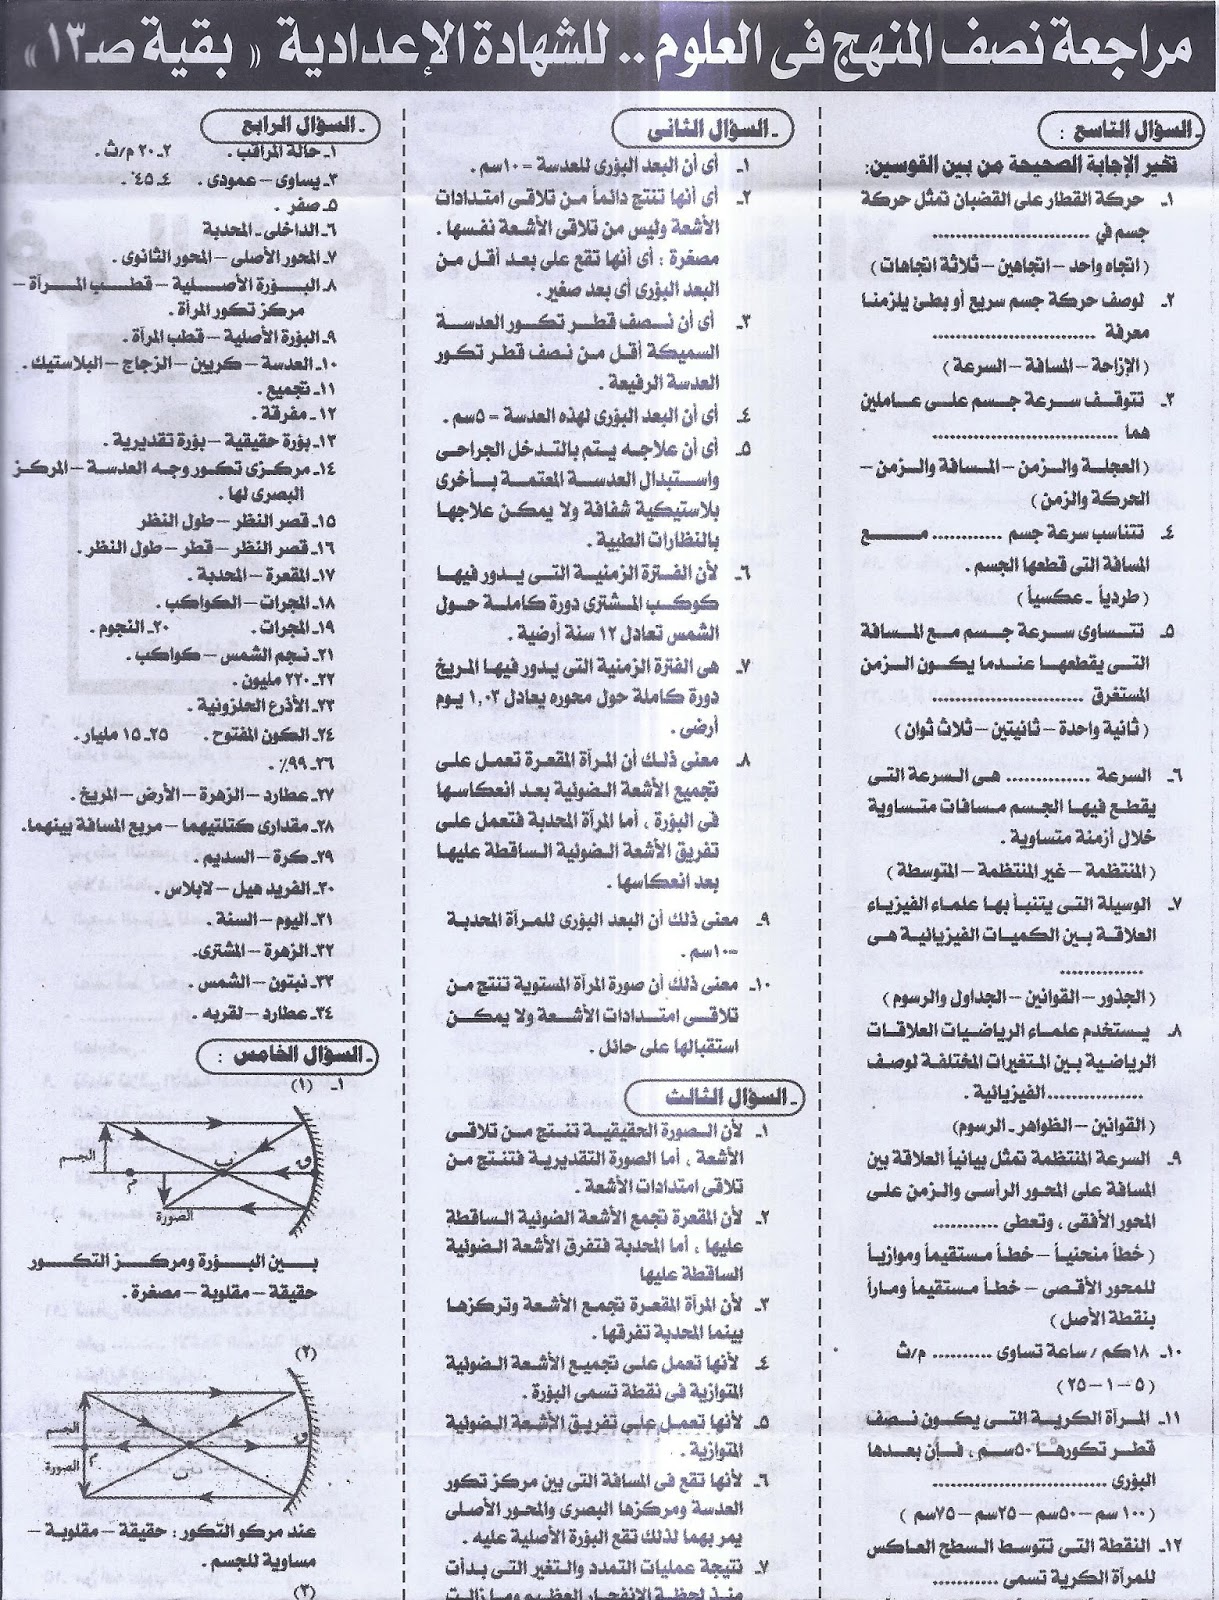 مراجعة نصف المنهج فى العلوم .. للشهادة الإعدادية « بقية صـ١٣ »
ـ السؤال التاسع :
تخير الإجابة الصحيحة من بين القوسين:
١ـ حركة القطار على القضبان تمثل حركة
جسم في ..............................
( اتجاه واحد – اتجاهين – ثلاثة اتجاهات )
٢ـ لوصف حركة جسم سريع أو بطئ يلزمنا
معرفة ..............................
( الإزاحة – المسافة – السرعة )
٣ـ تتوقف سرعة جسم على عاملين
هما ..............................
( العجلة والزمن – المسافة والزمن –
الحركة والزمن )
٤ـ تتناسب سرعة جسم ............ مع
المسافة التى قطعها الجسم .
( طردياً ـ عكسياً )
٥ـ تتساوى سرعة جسم مع المسافة
التى يقطعها عندما يكون الزمن
المستغرق ......................
( ثانية واحدة – ثانيتين – ثلاث ثوان )
٦ـ السرعة .............. هى السرعة التى
يقطع فيها الجسم مسافات متساوية
خلال أزمنة متساوية .
( المنتظمة – غير المنتظمة – المتوسطة )
٧ـ الوسيلة التى يتنبأ بها علماء الفيزياء
العلاقة بين الكميات الفيزيائية هى
..............
( الجذور – القوانين – الجداول والرسوم )
٨ـ يستخدم علماء الرياضيات العلاقات
الرياضية بين المتغيرات المختلفة لوصف
................الفيزيائية .
( القوانين – الظواهر ـ الرسوم)
٩ـ السرعة المنتظمة تمثل بيانياً العلاقة بين
المسافة على المحور الرأسى والزمن على
المحور الأفقى ، وتعطى ...........
( خطاً منحنياً – خطاً مستقيماً وموازياً
للمحور الأقصى – خطاً مستقيماً وماراً
بنقطة الأصل )
١٠ـ ١٨كم / ساعة تساوى .......... م/ث
( ٥ – ١ – ٢٥ )
١١ـ المرآة الكرية التى يكون نصف
قطر تكورها ٥٠سم ، فإن بعدها
البؤرى ......................
( ١٠٠ سم – ٥٠سم – ٢٥سم – ٧٥سم )
١٢ـ النقطة التى تتوسط السطح العاكس
للمرآة الكرية تسمى ............
ـ السؤال الثانى
١ـ أى أن البعد البؤرى للعدسة = ١٠سم .
٢ـ أى أنها تنتج دائماً من تلاقى امتدادات
الأشعة وليس من تلاقى الأشعة نفسها .
مصغرة : أى أنها تقع على بعد أقل من
البعد البؤرى أى بعد صغير .
٣ـ أى أن نصف قطر تكور العدسة
السميكة أقل من نصف قطر تكور
العدسة الرفيعة .
٤ـ أى أن البعد البؤرى لهذه العدسة = ٥سم .
٥ـ أى أن علاجه يتم بالتدخل الجراحى
واستبدال العدسة المعتمة بأخرى
بلاستيكية شفافة ولا يمكن علاجها
بالنظارات الطبية .
٦ـ لأن الفترة الزمنية التى يدور فيها
كوكب المشترى دورة كاملة حول
الشمس تعادل ١٢ سنة أرضية .
٧ـ هى الفترة الزمنية التى يدور فيها المريخ
دورة كاملة حول محوره يعادل ١,٠٣ يوم
أرضى .
٨ـ معنى ذلك أن المرآة المقعرة تعمل على
تجميع الأشعة الضوئية بعد انعكاسها
فى البؤرة ، أما المرآة المحدبة فتعمل على
تفريق الأشعة الضوئية الساقطة عليها
بعد انعكاسها .
٩ـ معنى ذلك أن البعد البؤرى للمرآة المحدبة
=١٠سم .
١٠ـ معنى ذلك أن صورة المرآة المستوية تنتج من
تلاقى امتدادات الأشعة ولا يمكن
استقبالها على حائل .
ـ السؤال الثالث
١ـ لأن الصورة الحقيقية تنتج من تلاقى
الأشعة ، أما الصورة التقديرية فتنتج من
تلاقى امتدادات الأشعة .
٢ـ لأن المقعرة تجمع الأشعة الضوئية الساقطة
عليها ، أما المحدبة فتفرق الأشعة الضوئية
الساقطة عليها
٣ـ لأن المرآة المقعرة تجمع الأشعة وتركزها
بينما المحدبة تفرقها .
٤ـ لأنها تعمل على تجميع الأشعة الضوئية
المتوازية فى نقطة تسمى البؤرة .
٥ـ لأنها تعمل على تفريق الأشعة الضوئية
المتوازية .
٦ـ لأنها تقع فى المسافة التى بين مركز تكور
العدسة ومركزها البصرى والمحور الأصلى
يمر بهما لذلك تقع البؤرة الأصلية عليه .
٧ـ نتيجة عمليات التمدد والتغير التى بدأت
منذ لحظة الانفجار العظيم وما زالت
ـ السؤال الرابع
١ـ حالة المراقب . ٢ـ ٢٠ م/ث .
٣ـ يساوى – عمودى . ٤ـ ٤٥ .
٥ ـ صفر .
٦ـ الداخلى ـ المحدبة
٧ـ المحور الأصلى – المحور الثانوى .
٨ـ البؤرة الأصلية – قطب المرآة –
مركز تكور المرآة .
٩ـ البؤرة الأصلية – قطب المرآة .
١٠ـ العدسة – كريين – الزجاج – البلاستيك .
١١ـ تجميع .
١٢ـ مفرقة .
١٣ـ بؤرة حقيقية – بؤرة تقديرية .
١٤ـ مركزى تكور وجه العدسة – المركز
البصرى لها .
١٥ـ قصر النظر – طول النظر
١٦ـ قصر النظر – قطر – طول النظر .
١٧ـ المقعرة – المحدبة .
١٨ـ المجرات – الكواكب .
١٩ـ المجرات . ٢٠ـ النجوم .
٢١ـ نجم الشمس – كواكب .
٢٢ـ ٢٢٠ مليون .
٢٣ـ الأذرع الحلزونية .
٢٤ـ الكون المفتوح . ٢٥ـ ١٥ مليار .
٢٦ـ ٩٩٪ .
٢٧ـ عطارد – الزهرة – الأرض – المريخ .
٢٨ـ مقدارى كتلتيهما – مربع المسافة بينهما.
٢٩ـ كرة – السديم .
٣٠ـ الفريد هيل – لابلاس .
٣١ـ اليوم – السنة .
٣٢ـ الزهرة – المشترى.
٣٣ـ نبتون – الشمس .
٣٤ـ عطارد – لقربه .
ـ السؤال الخامس :
١ـ (١)
الجسم
ب
ق
م
الصورة
بين البؤرة ومركز التكور
حقيقة – مقلوبة – مصغرة .
(٢)
الجسم
ق
م
الصورة
ب
عند مركو التكور : حقيقة – مقلوبة –
مساوية للجسم .
(٣)